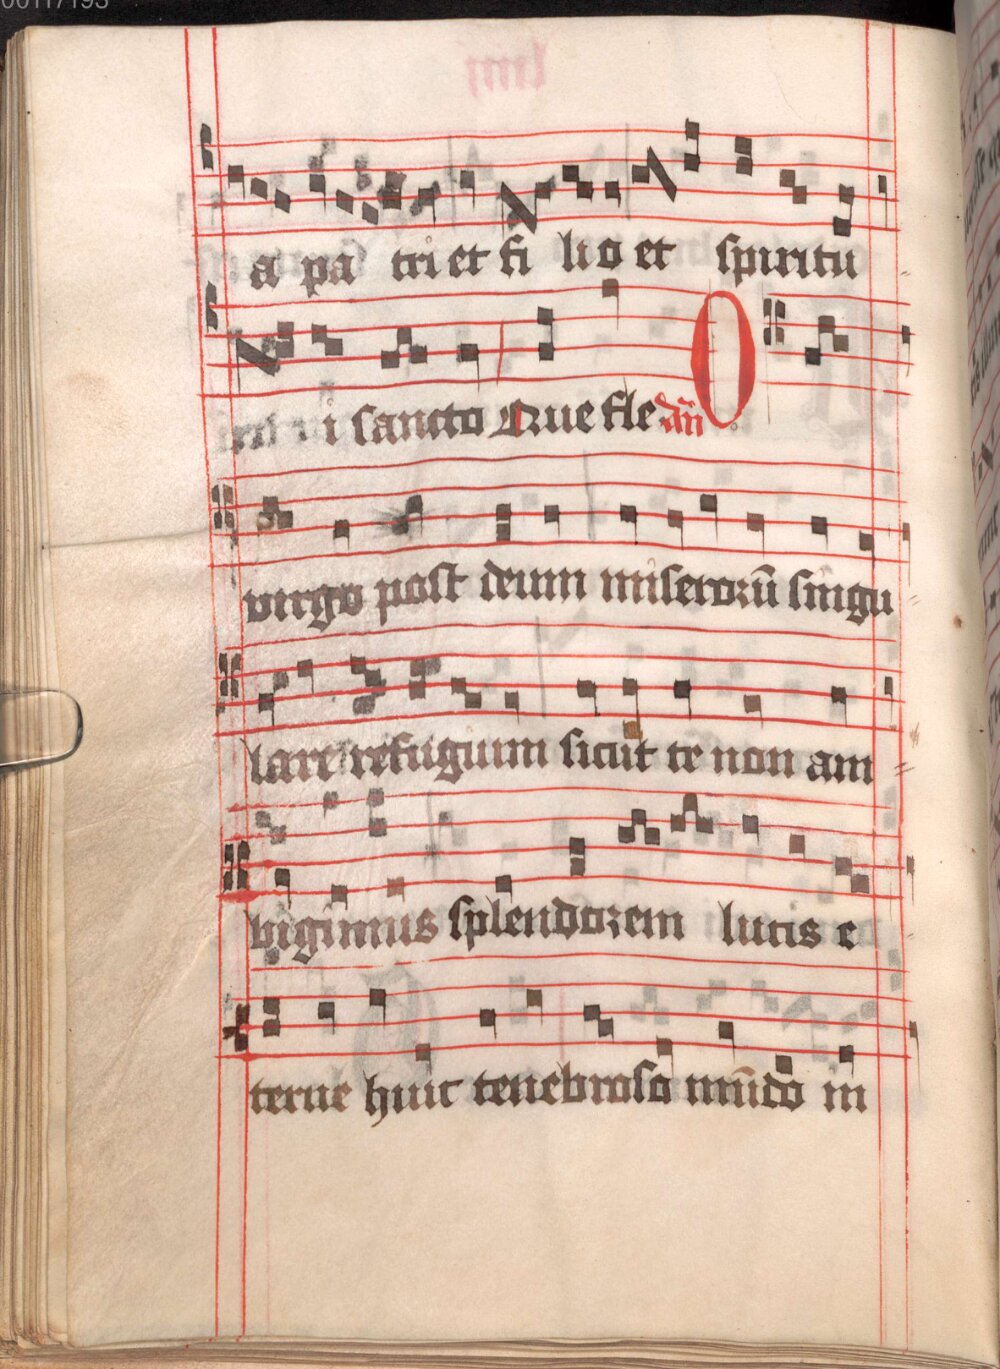 00117193
a pa tri et fi lio et spiritu
i sancto Que fle añ O
virgo post deum miserorū singu
lare refugium sicut te non am
bigimus splendorem lucis e
terne huic tenebroso mūdo in